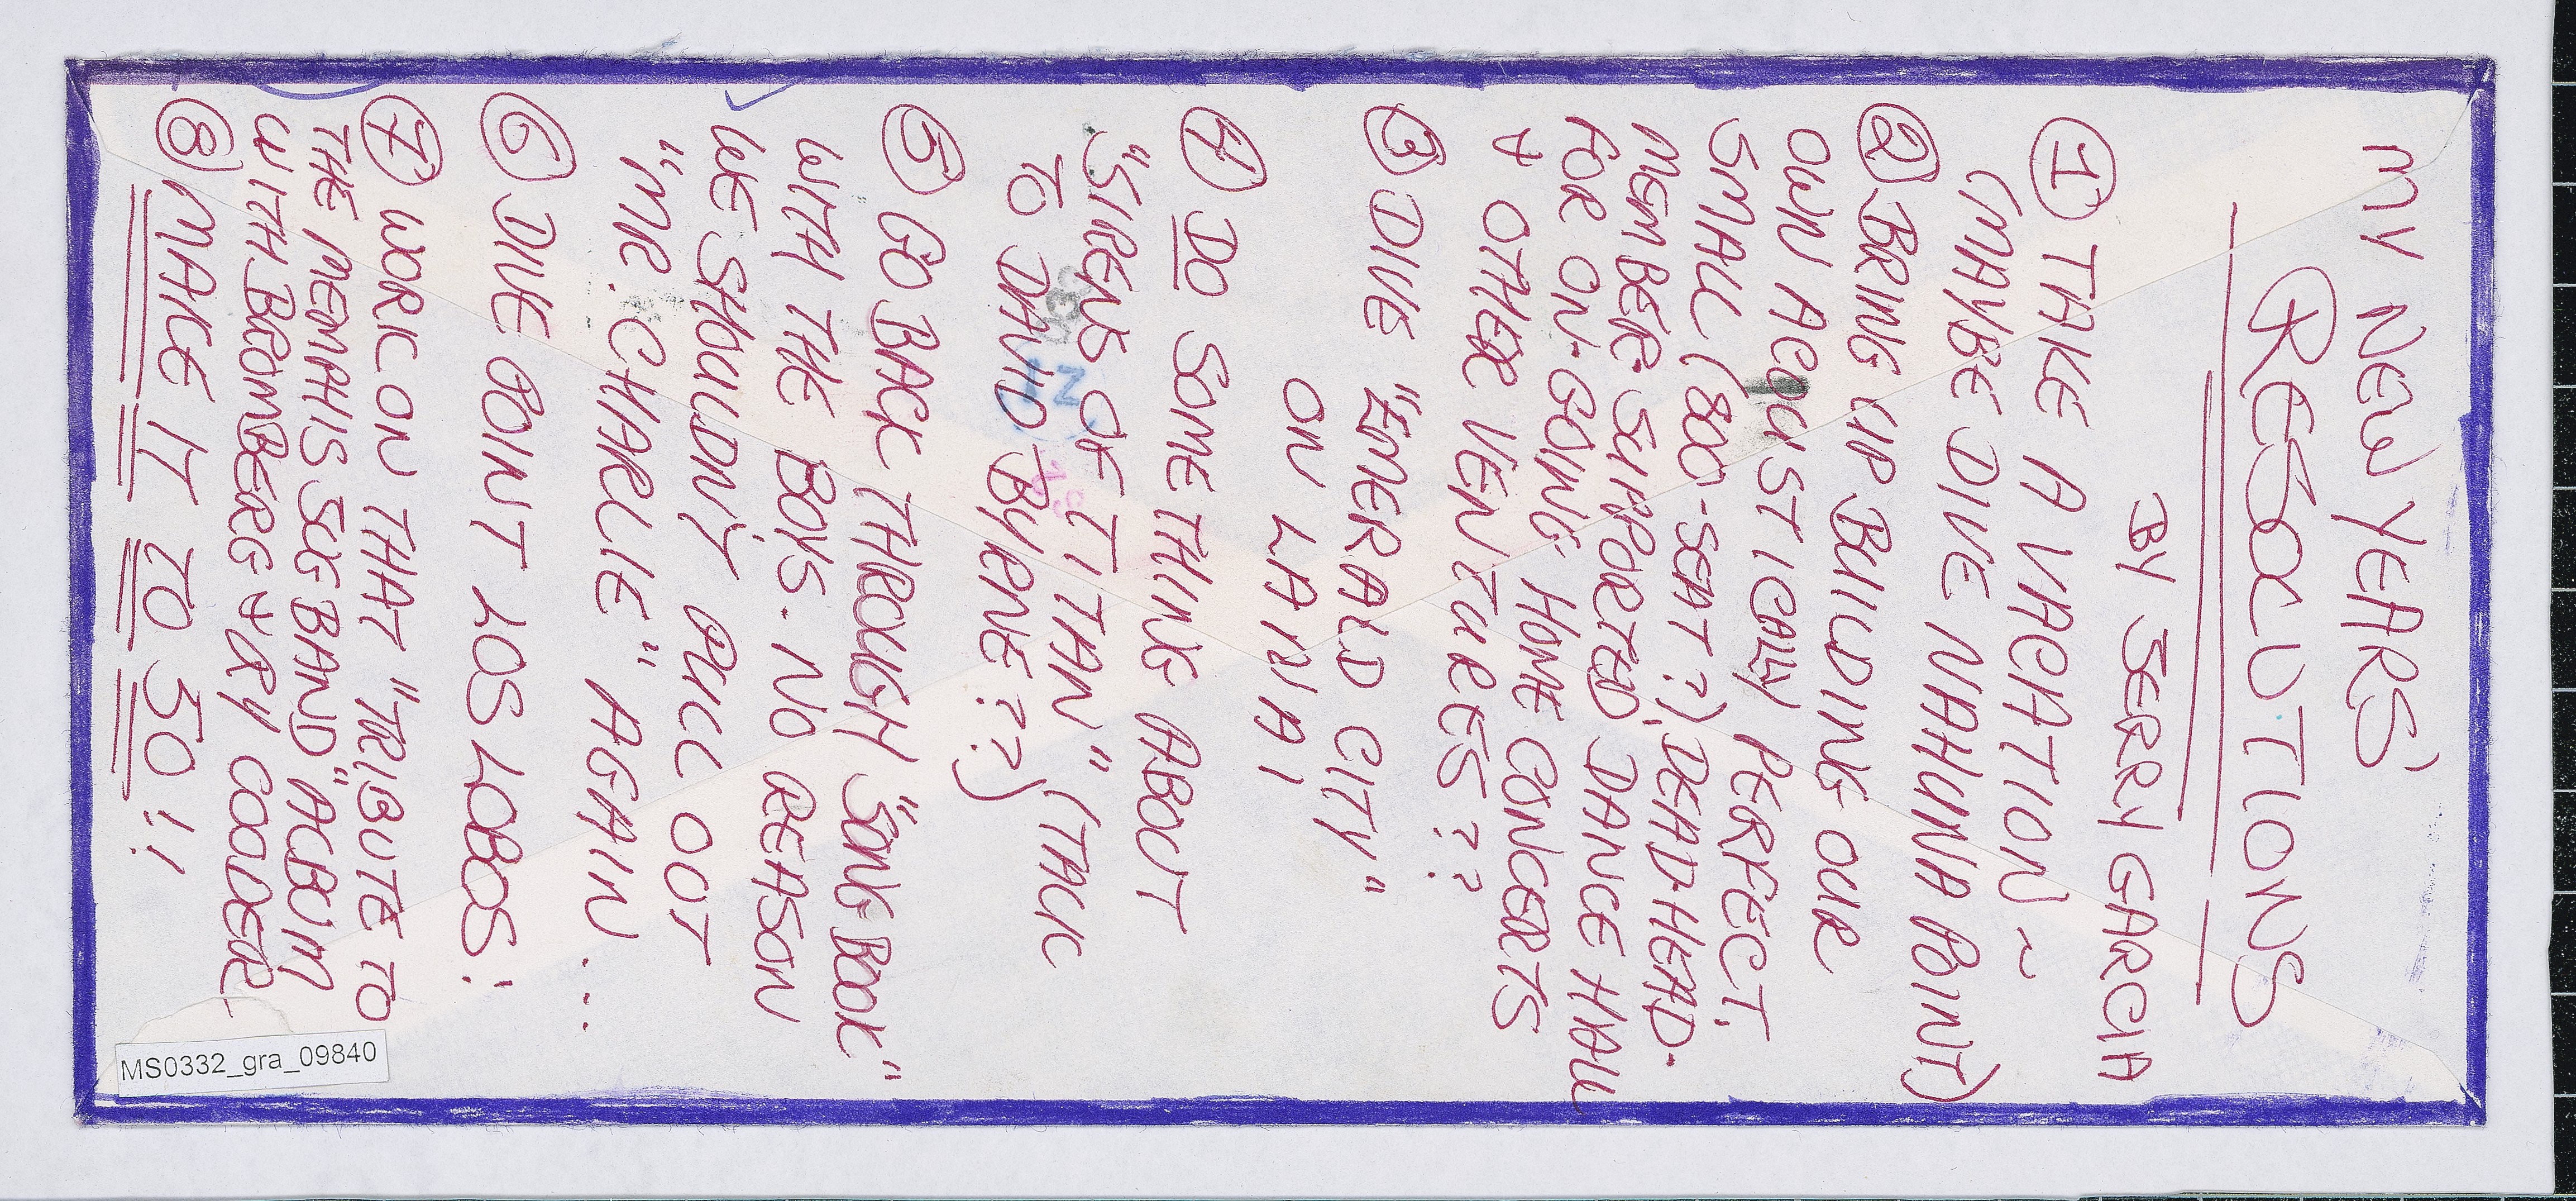 MY NEW YEARS'
RESOLUTIONS
BY JERRY GARCIA
① TAKE A VACATION ~
(MAYBE DIVE NAHUNA POINT)
② BRING UP BUILDING OUR
OWN ACOUSTICALLY PERFECT,
SMALL (800-SEAT?) DEAD-HEAD-
MEMBER-SUPPORTED, DANCE HALL
FOR ON-GOING HOME CONCERTS
& OTHER VENTURES??
③ DIVE "EMERALD CITY"
ON LANAI
④ DO SOMETHING ABOUT
"SIRENS OF TITAN" (TALK
TO DAVID BYRNE??)
⑤ GO BACK THROUGH "SONG BOOK"
WITH THE BOYS. NO REASON
WE SHOULDN'T PULL OUT
"MR. CHARLIE" AGAIN...
⑥ DIVE POINT LOS LOBOS!
⑦ WORK ON THAT "TRIBUTE TO
THE MEMPHIS JUG BAND" ALBUM
WITH BROMBERG & RY COODER
⑧ MAKE IT TO 50!!
MS0332_gra_09840